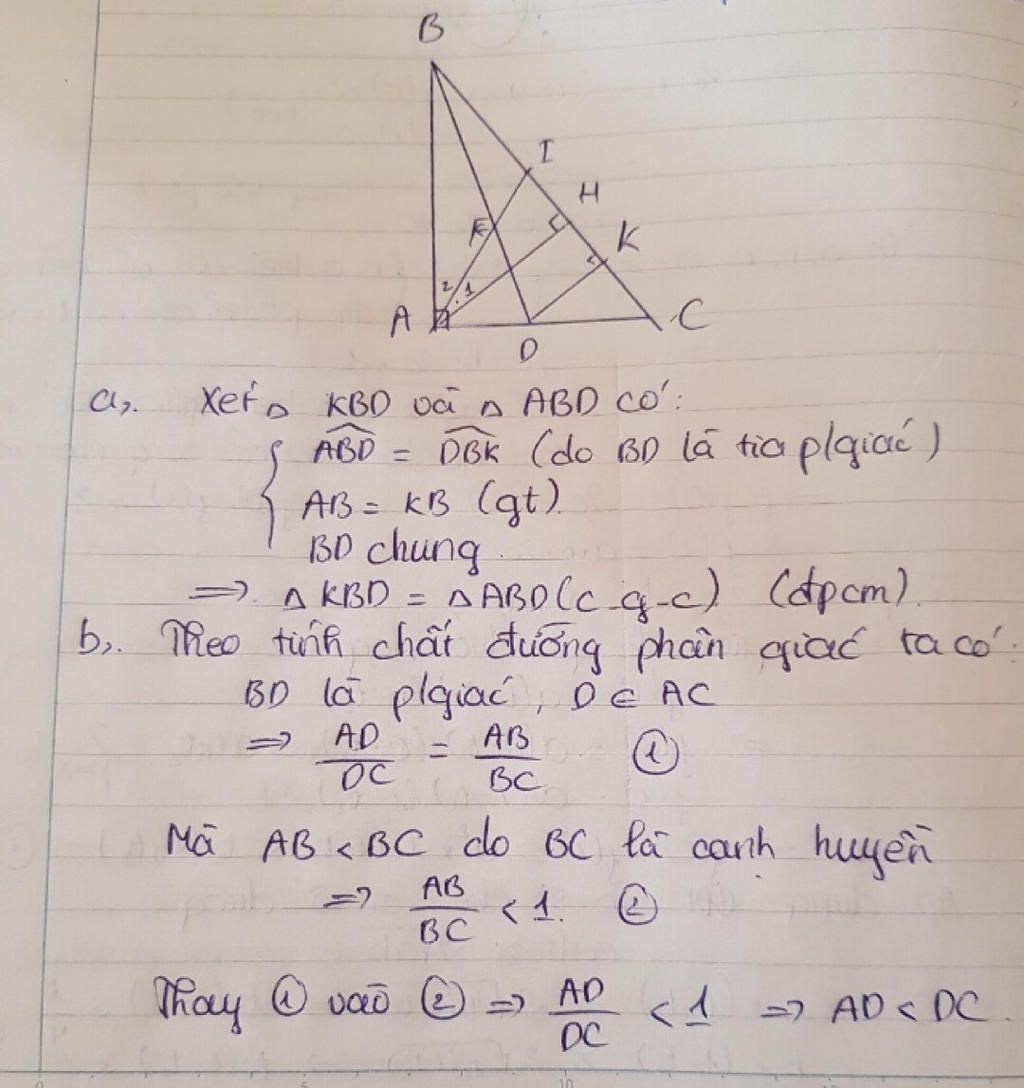 B
I
H
E
K
2 1
A
C
D
a,. Xét △ KBD và △ ABD có:
ABD = DBK (do BD là tia p/giác)
AB = KB (gt).
BD chung.
=> △ KBD = △ ABD (c-g-c) (đpcm).
b,. Theo tính chất đường phân giác ta có:
BD là p/giác, D ∈ AC
=> AD/DC = AB/BC ①
Mà AB < BC do BC là cạnh huyền
=> AB/BC < 1. ②
Thay ① vào ② => AD/DC < 1 => AD < DC.
0 5 10